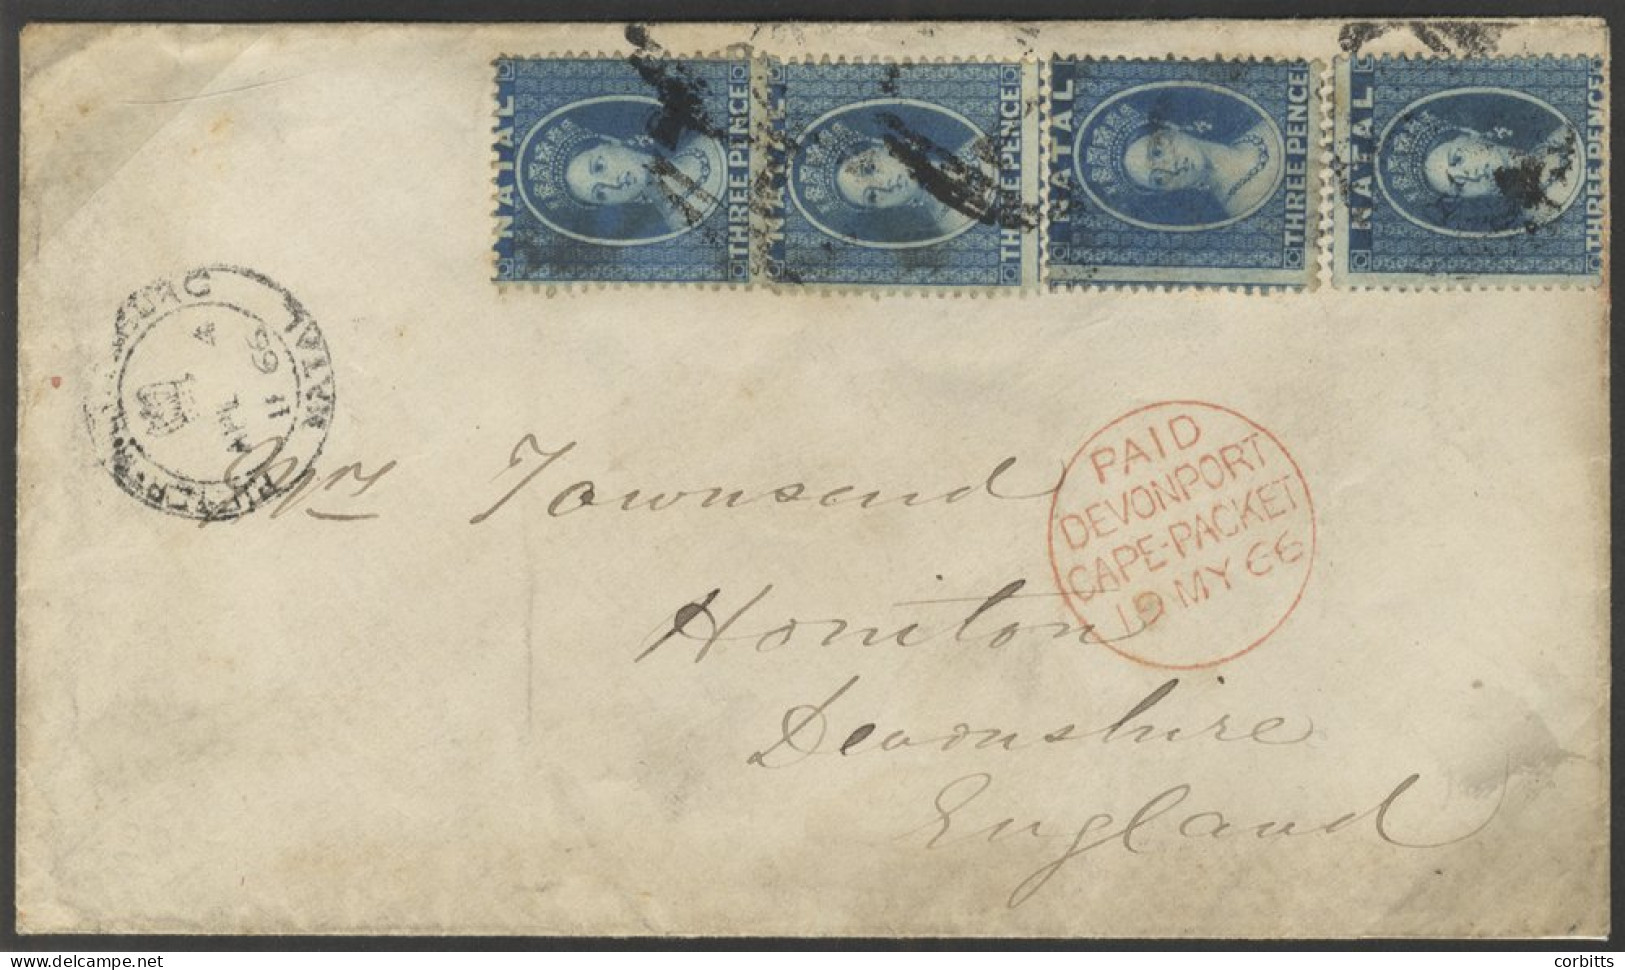 NATAL THREE PENCE
NATAL THREE PENCE
NATAL THREE PENCE
NATAL THREE PENCE
NATAL
11
66
PAID
DEVONPORT
CAPE-PACKET
19 MY 66
Townsend
Honiton
Devonshire
England
delcampe.net
corbitts